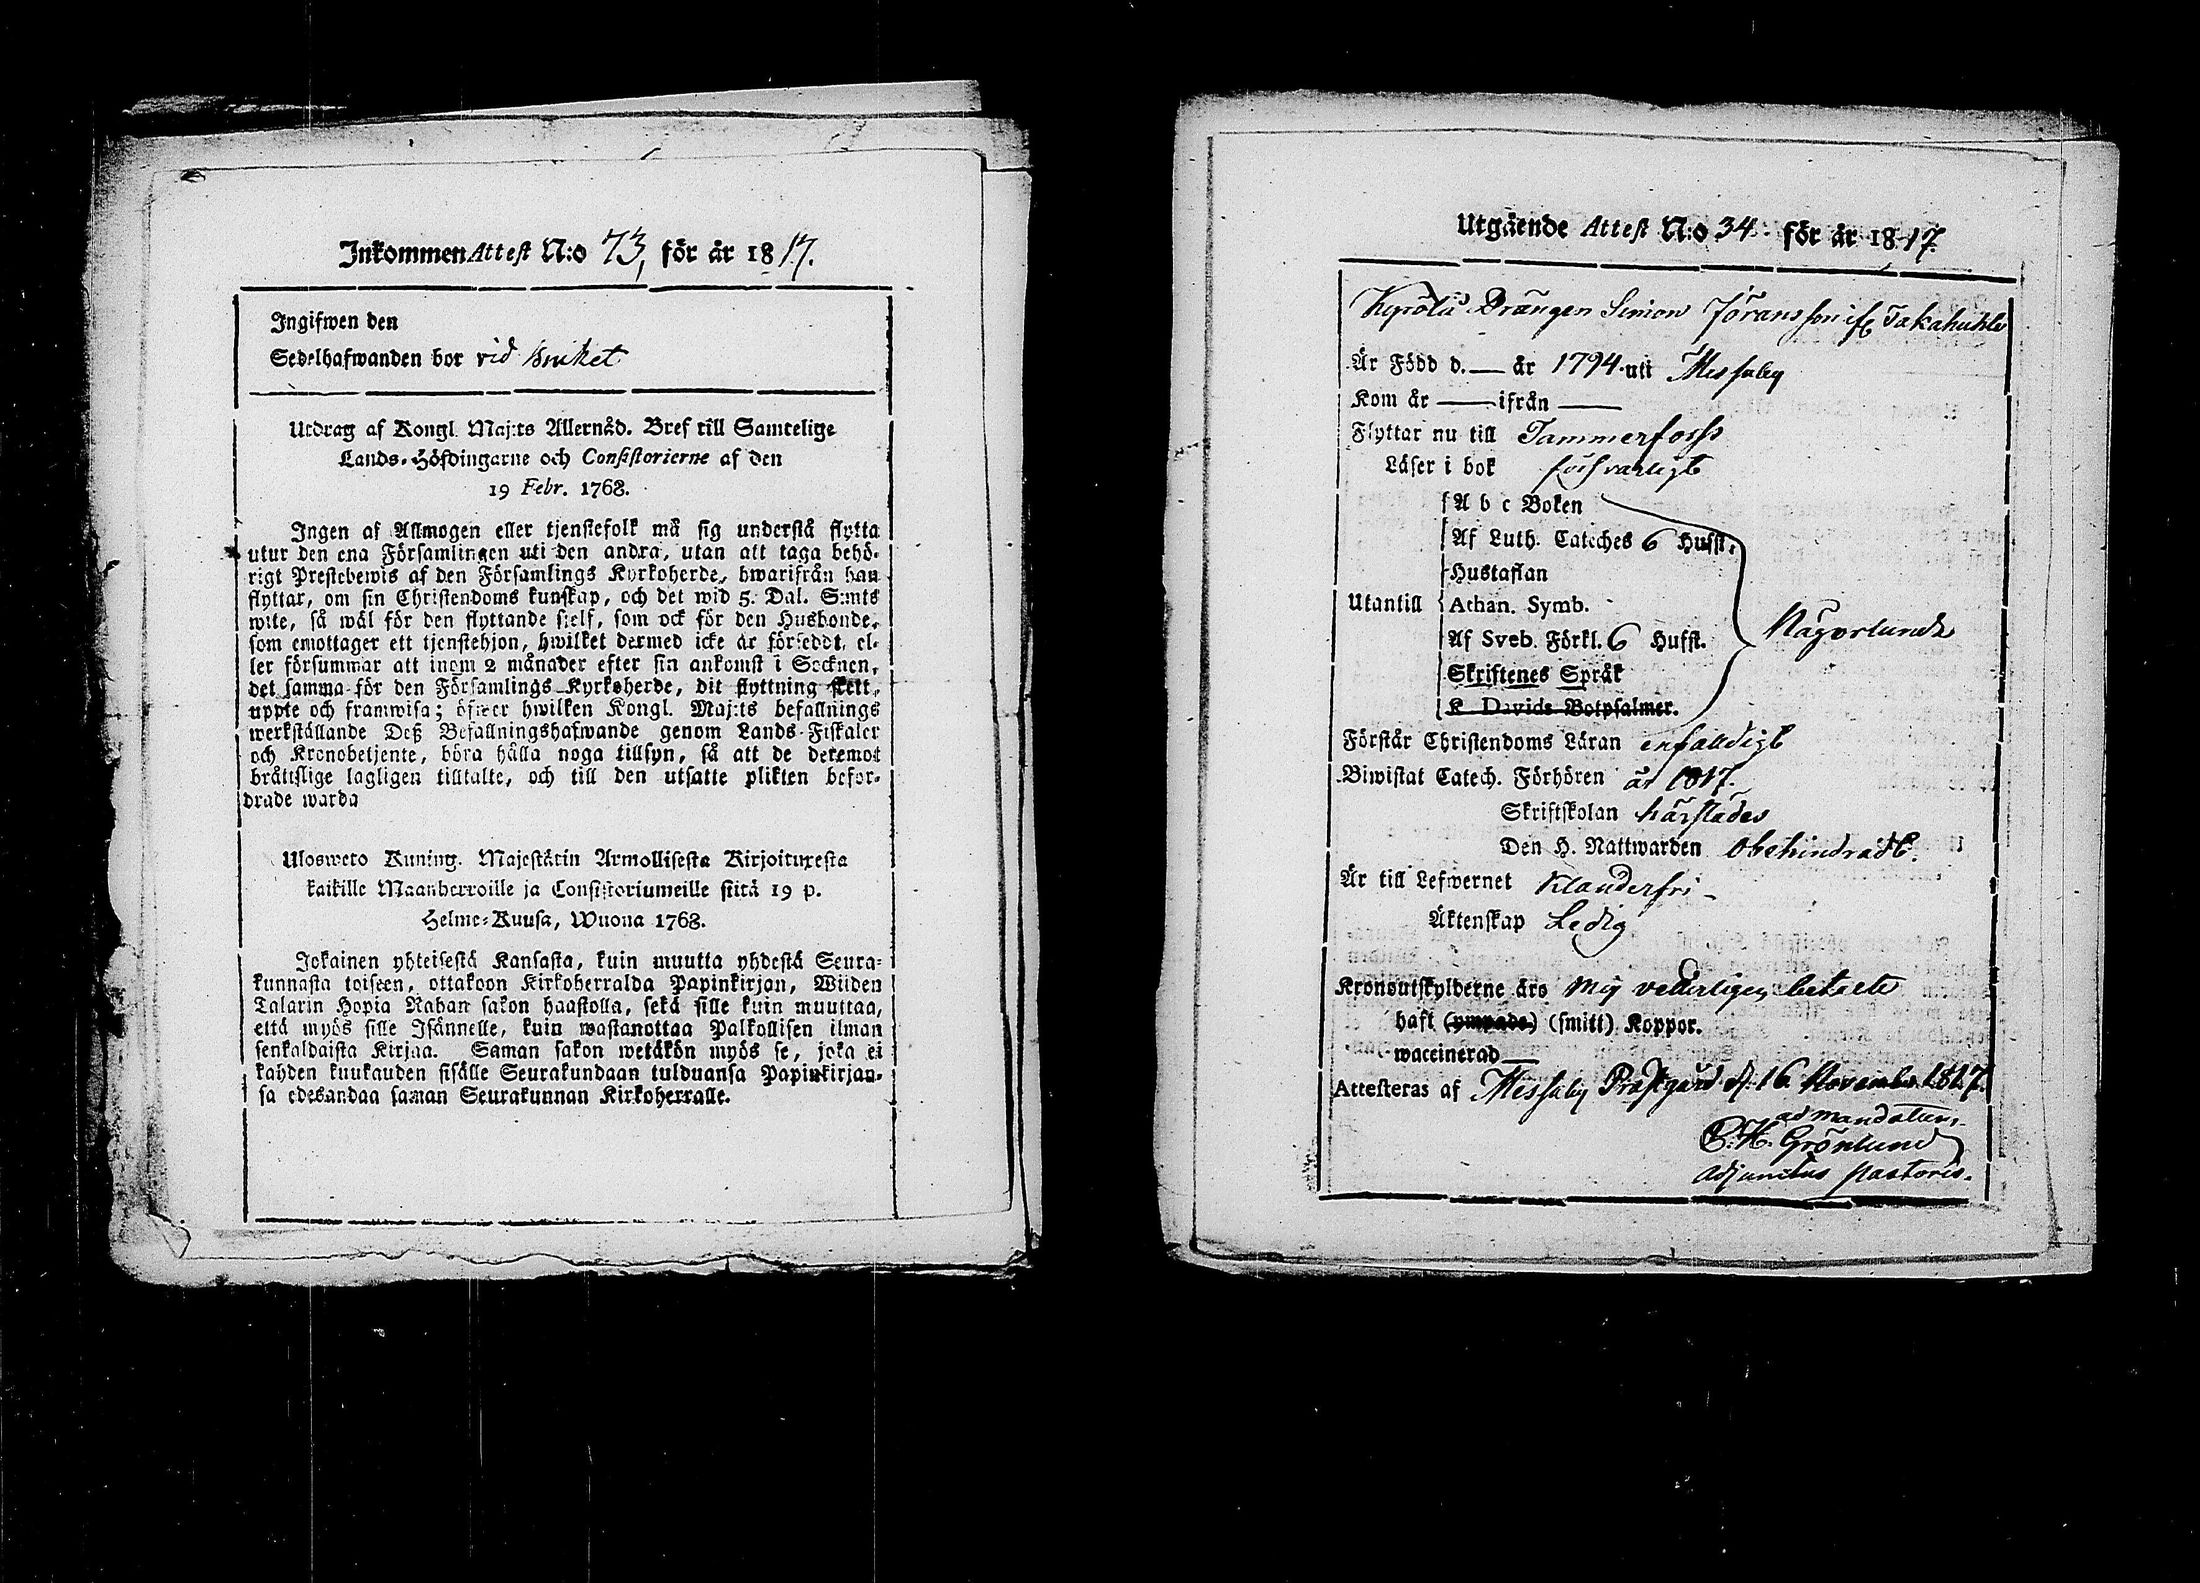 Inkommen Attest N:o 73, för år 1817.
Ingifwen den
Sedelhafwanden bor vid Bruket
Utdrag af Kongl. Maj:ts Allernåd. Bref till Samtelige
Lands-Höfdingarne och Consistorierne af den
19 Febr. 1768.
Ingen af Allmogen eller tjenstefolk må sig understå flytta
utur den ena Församlingen uti den andra, utan att taga behö-
rigt Prestebewis af den Församlings Kyrkoherde, hwarifrån han
flyttar, om sin Christendoms kunskap, och det wid 5. Dal. S:mts
wite, så wäl för den flyttande sielf, som ock för den Husbonde,
som emottager ett tjenstehjon, hwilket dermed icke är förseddt, el-
ler försummar att inom 2 månader efter sin ankomst i Socknen,
det samma för den Församlings Kyrkoherde, dit flyttning skett,
uppte och framwisa; öfwer hwilken Kongl. Maj:ts befallnings
werkställande Deß Befallningshafwande genom Lands-Fiskaler
och Kronobetjente, böra hålla noga tillsyn, så att de deremot
bråttslige lagligen tilltalte, och till den utsatte plikten befor-
drade warda
Ulosweto Kuning. Majestätin Armollisesta Kirjoituxesta
kaikille Maanherroille ja Consistoriumeille siitä 19 p.
Helme-Kuusa, Wuona 1768.
Jokainen yhteisestä Kansasta, kuin muutta yhdestä Seura-
kunnasta toiseen, ottakoon Kirkoherralda Papinkirjan, Wiiden
Talarin Hopia Rahan sakon haastolla, sekä sille kuin muuttaa,
että myös sille Isännelle, kuin wastanottaa Palkollisen ilman
senkaldaista Kirjaa. Saman sakon wetäkön myös se, joka ei
kahden kuukauden sisälle Seurakundaan tulduansa Papinkirjan-
sa edesandaa saman Seurakunnan Kirkoherralle.
Utgående Attest N:o 34. för år 1817.
Kyrölä Drängen Simon Jöransson if Takahuhti
Är Född d. — år 1794 uti Messuby
Kom år — ifrån —
Flyttar nu till Tammerforss
Läser i bok försvarligt
A b c Boken
Af Luth. Cateches 6 Hufst.
Hustaflan
Utantill Athan. Symb. Någorlunda
Af Sveb. Förkl. 6 Hufst.
Skriftenes Språk
K. Davids Botpsalmer.
Förstår Christendoms Läran enfaldigt
Biwistat Catech. Förhören år 1817.
Skriftskolan härstädes
Den H. Nattwarden Obehindradt.
Är till Lefwernet Klanderfri
Äktenskap Ledig
Kronoutskylderne äro Mig veterligen betalte
haft (ympade) (smitt) Koppor.
waccinerad —
Attesteras af Messuby Prästgård d. 16 November 1817.
ad mandatum
Grönlund
adjunctus pastoris.